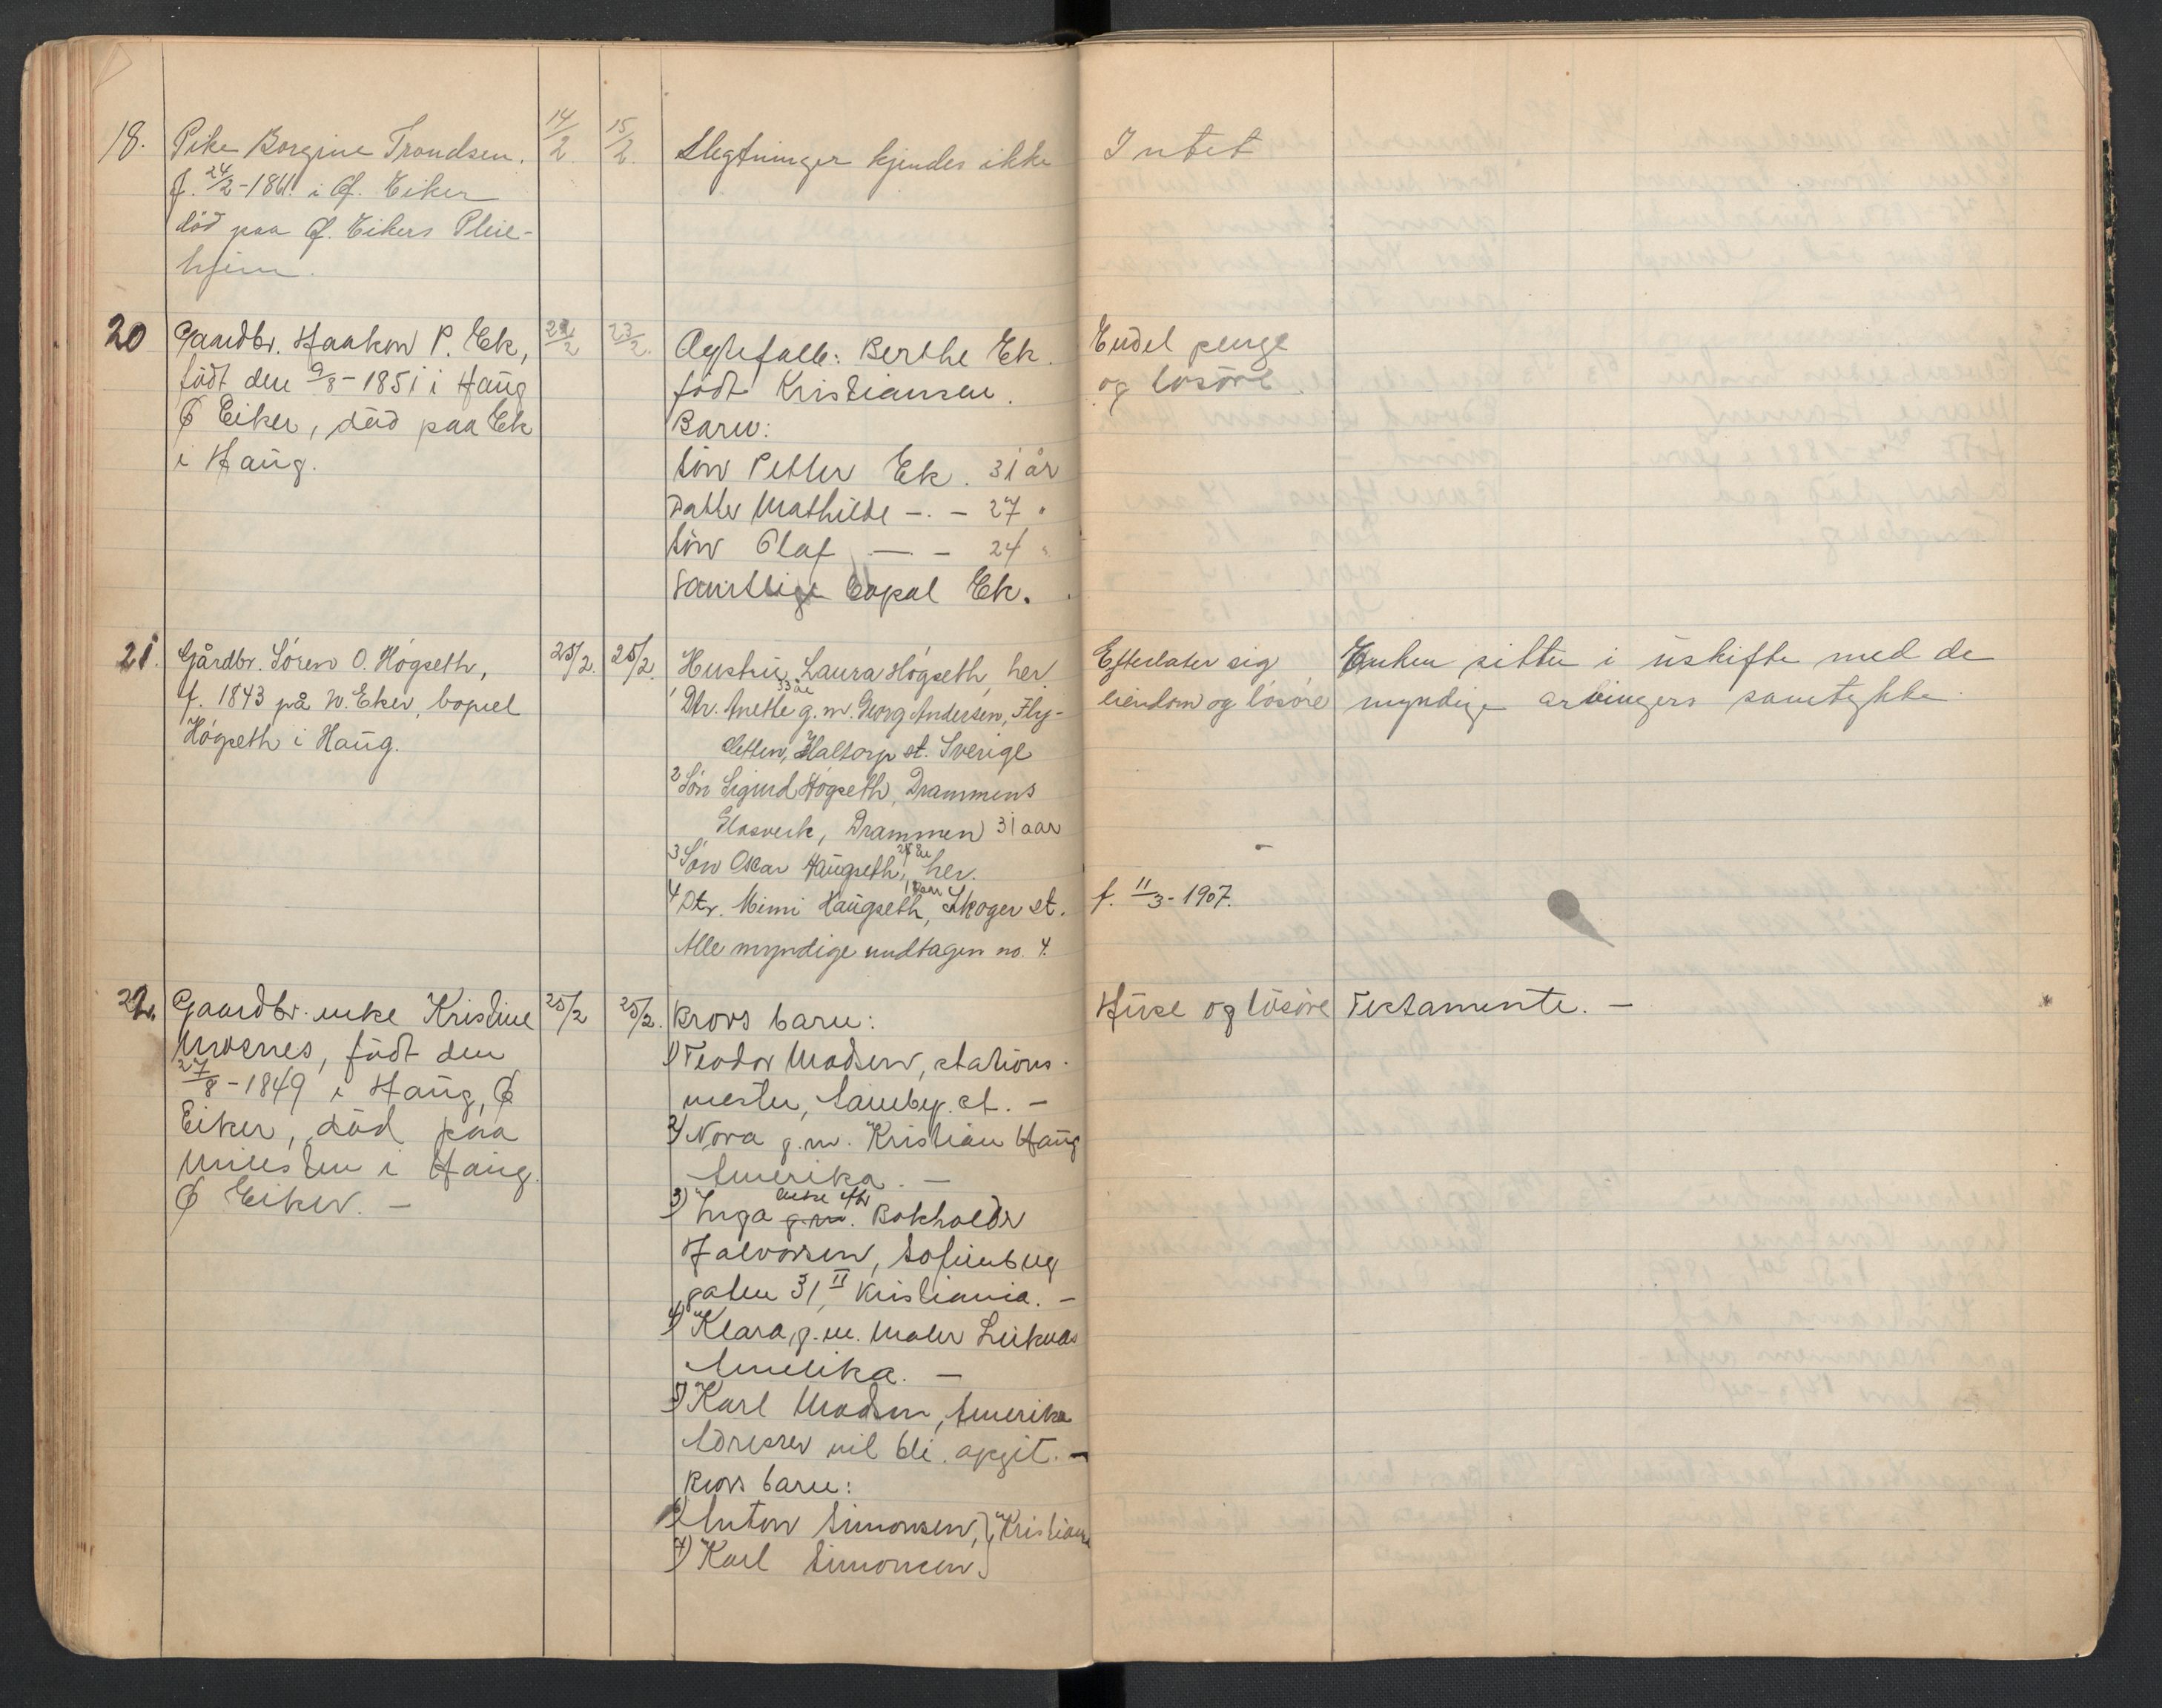 18.
Pike Borgine Trondsen.
f. 24/2-1861 i Ø. Eiker
död paa Ø. Eikers Pleie-
hjem.
14/2
15/2.
Slegtninger kjendes ikke
Intet
20
Gaardbr. Haakon P. Ek,
födt den 9/8-1851 i Haug
Ø Eiker, död paa Ek
i Haug.
22/2
23/2.
Ægtefælle: Berthe Ek.
födt Kristiansen.
Barn:
sön Petter Ek. 31 år
Datter Mathilde -.- 27 "
sön Olaf -.- 24 "
samtlige bopæl Ek.
Endel penge
og lösöre.
21.
Gårdbr. Sören O. Högseth,
f. 1843 på N. Eker, bopæl
Högseth i Haug.
25/2.
25/2.
Hustru Laura Högseth, her
33 år
1 Dtr. Anette g. m. Georg Andersen, Fly-
sletten, Haltorp st. Sverige
2 Sön Sigurd Högseth, Drammens
Glasverk, Drammen 31 aar
3 Sön Oskar Haugseth, 28 år her.
4 Dtr. Mimi Haugseth, Skoger st.
Alle myndige undtagen no. 4.
Efterlater sig
eiendom og lösöre
f. 11/3-1907.
Enken sitter i uskifte med de
myndige arvingers samtykke.
22.
Gaardbr. enke Kristine
Mosnes, födt den
27/8-1849 i Haug, Ø
Eiker, död paa
Milesten i Haug.
Ø Eiker. -
25/2
25/2.
Brors barn:
1) Teodor Madsen, stations-
mester, st. -
2) Nora g.m. Kristian Haug
Amerika. -
3) Inga g.m. enke efter Bokholder
Halvorsen, Sofienberg
gaten 31 II, Kristiania. -
4) Klara, g.m. Maler
Amerika. -
5) Karl Madsen, Amerika
Adresser vil bli opgit. -
Brors barn:
6) Anton Simonsen, } Kristiania
7) Karl Simonsen }
Huse og lösöre
Testamente. -